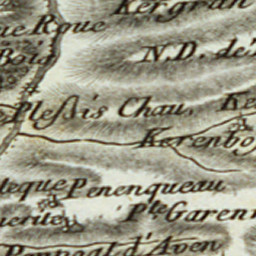 Kergran
ue Roue
Bois
N.D. de
Pleſsis Chau,
Ke
Kerenbo
leque Penenqueau
uerite
P.te Garenn
Penpoal d'Aven